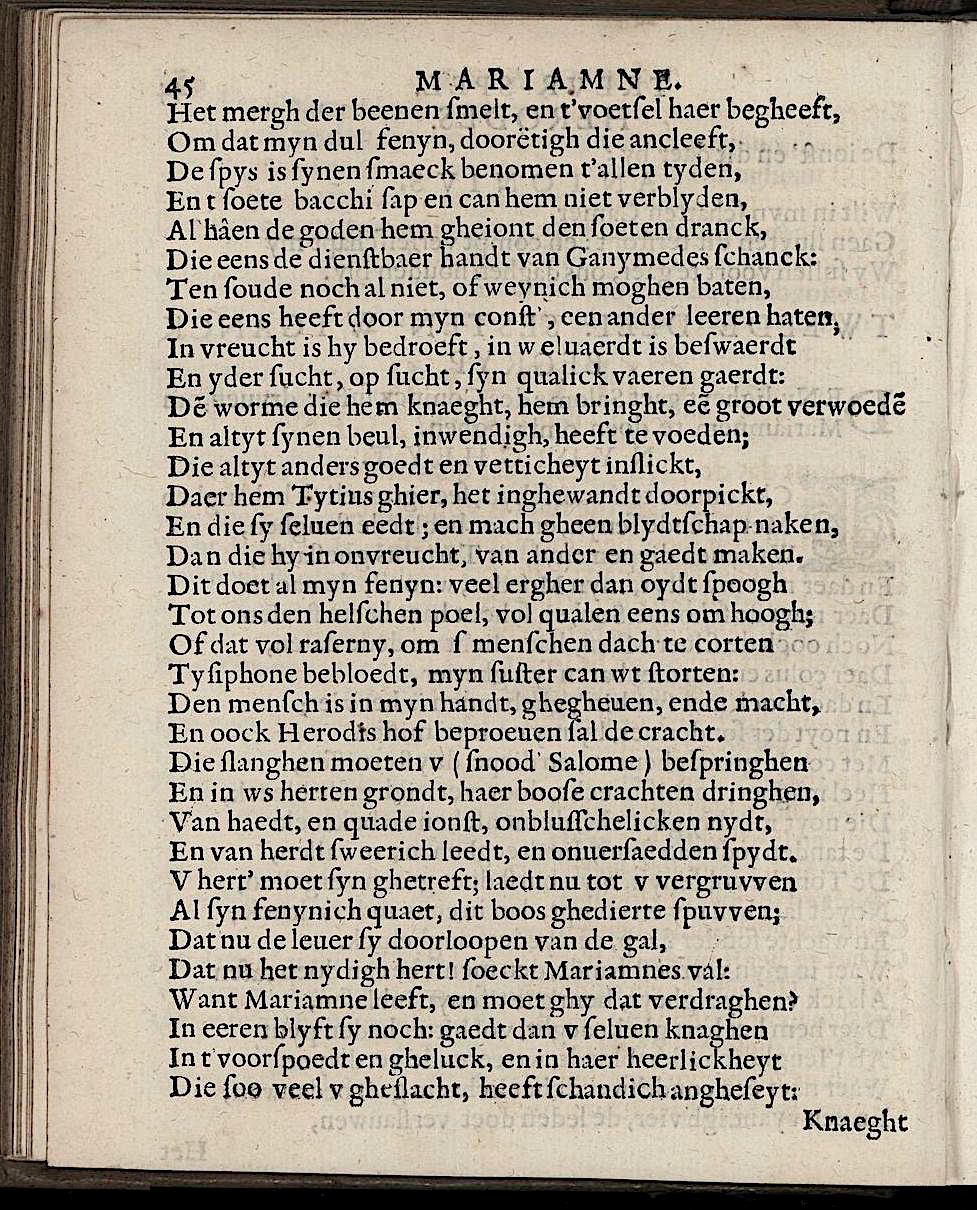 45 MARIAMNE.
Het mergh der beenen ſmelt, en t'voetſel haer begheeft,
Om dat myn dul fenyn, doorëtigh die ancleeft,
De ſpys is ſynen ſmaeck benomen t'allen tyden,
En t ſoete bacchi ſap en can hem niet verblyden,
Al hâen de goden hem gheiont den ſoeten dranck,
Die eens de dienſtbaer handt van Ganymedes ſchanck:
Ten ſoude noch al niet, of weynich moghen baten,
Die eens heeft door myn conſt', een ander leeren haten,
In vreucht is hy bedroeft, in weluaerdt is beſwaerdt
En yder ſucht, op ſucht, ſyn qualick vaeren gaerdt:
Dē worme die hem knaeght, hem bringht, eē groot verwoedē
En altyt ſynen beul, inwendigh, heeft te voeden;
Die altyt anders goedt en vetticheyt inſlickt,
Daer hem Tytius ghier, het inghewandt doorpickt,
En die ſy ſeluen eedt; en mach gheen blydtſchap naken,
Dan die hy in onvreucht, van ander en gaedt maken.
Dit doet al myn fenyn: veel ergher dan oydt ſpoogh
Tot ons den helſchen poel, vol qualen eens om hoogh;
Of dat vol raſerny, om ſ menſchen dach te corten
Tyſiphone bebloedt, myn ſuſter can wt ſtorten:
Den menſch is in myn handt, ghegheuen, ende macht,
En oock Herodis hof beproeuen ſal de cracht.
Die ſlanghen moeten v (ſnood' Salome) beſpringhen
En in ws herten grondt, haer booſe crachten dringhen,
Van haedt, en quade ionſt, onbluſſchelicken nydt,
En van herdt ſweerich leedt, en onuerſaedden ſpydt.
V hert' moet ſyn ghetreft; laedt nu tot v vergruvven
Al ſyn fenynich quaet, dit boos ghedierte ſpuvven;
Dat nu de leuer ſy doorloopen van de gal,
Dat nu het nydigh hert! ſoeckt Mariamnes val:
Want Mariamne leeft, en moet ghy dat verdraghen?
In eeren blyft ſy noch: gaedt dan v ſeluen knaghen
In t'voorſpoedt en gheluck, en in haer heerlickheyt
Die ſoo veel v gheſlacht, heeft ſchandich angheſeyt:
Knaeght